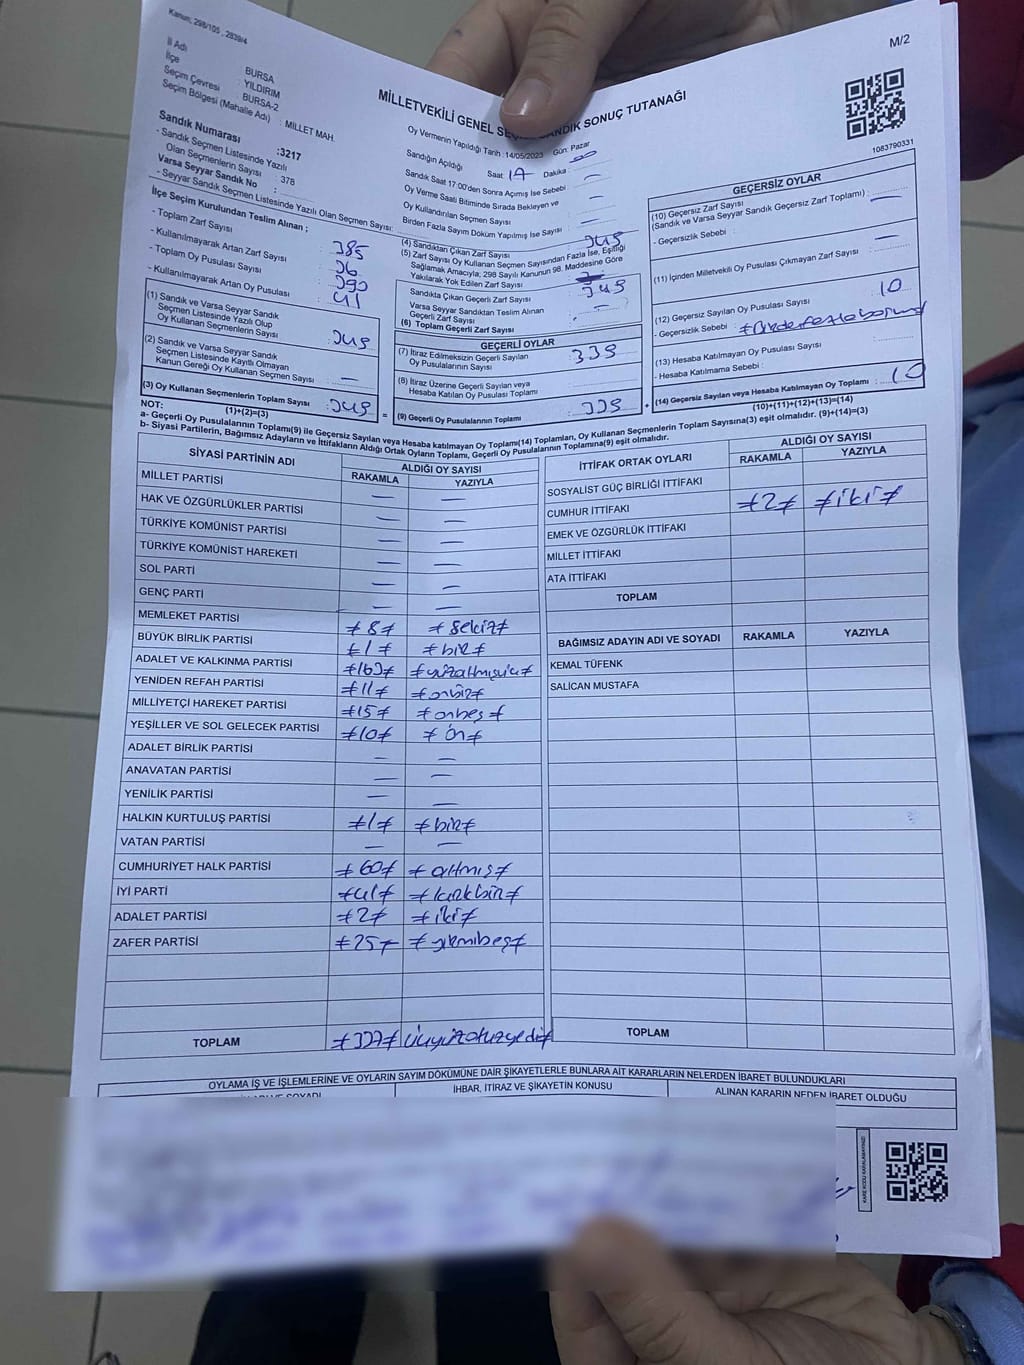 Kanun; 298/105 , 2839/4
M/2
İl Adı : BURSA
İlçe : YILDIRIM
Seçim Çevresi : BURSA-2
Seçim Bölgesi (Mahalle Adı) : MİLLET MAH.
MİLLETVEKİLİ GENEL SEÇİM SANDIK SONUÇ TUTANAĞI
1083790331
Sandık Numarası :3217
- Sandık Seçmen Listesinde Yazılı
Olan Seçmenlerin Sayısı : 378
Varsa Seyyar Sandık No :
- Seyyar Sandık Seçmen Listesinde Yazılı Olan Seçmen Sayısı:
Oy Vermenin Yapıldığı Tarih :14/05/2023 Gün: Pazar
Sandığın Açıldığı Saat: 17 Dakika :
Sandık Saat 17:00'den Sonra Açımış İse Sebebi : —
Oy Verme Saati Bitiminde Sırada Bekleyen ve
Oy Kullandırılan Seçmen Sayısı : —
Birden Fazla Sayım Döküm Yapılmış İse Sayısı : —
İlçe Seçim Kurulundan Teslim Alınan ;
- Toplam Zarf Sayısı : 385
- Kullanılmayarak Artan Zarf Sayısı : 36
- Toplam Oy Pusulası Sayısı : 390
- Kullanılmayarak Artan Oy Pusulası : 41
(1) Sandık ve Varsa Seyyar Sandık
Seçmen Listesinde Yazılı Olup
Oy Kullanan Seçmenlerin Sayısı : 349
(2) Sandık ve Varsa Seyyar Sandık
Seçmen Listesinde Kayıtlı Olmayan
Kanun Gereği Oy Kullanan Seçmen Sayısı : —
(3) Oy Kullanan Seçmenlerin Toplam Sayısı : 349 =
(4) Sandıktan Çıkan Zarf Sayısı : 349
(5) Zarf Sayısı Oy Kullanan Seçmen Sayısından Fazla İse, Eşitliği
Sağlamak Amacıyla; 298 Sayılı Kanunun 98. Maddesine Göre
Yakılarak Yok Edilen Zarf Sayısı :
Sandıkta Çıkan Geçerli Zarf Sayısı : 349
Varsa Seyyar Sandıktan Teslim Alınan
Geçerli Zarf Sayısı :
(6) Toplam Geçerli Zarf Sayısı
GEÇERLİ OYLAR
(7) İtiraz Edilmeksizin Geçerli Sayılan
Oy Pusulalarının Sayısı : 339
(8) İtiraz Üzerine Geçerli Sayılan veya
Hesaba Katılan Oy Pusulası Toplamı
(9) Geçerli Oy Pusulalarının Toplamı : 339 +
GEÇERSİZ OYLAR
(10) Geçersiz Zarf Sayısı
(Sandık ve Varsa Seyyar Sandık Geçersiz Zarf Toplamı) : —
- Geçersizlik Sebebi :
(11) İçinden Milletvekili Oy Pusulası Çıkmayan Zarf Sayısı : —
(12) Geçersiz Sayılan Oy Pusulası Sayısı : 10
- Geçersizlik Sebebi :
(13) Hesaba Katılmayan Oy Pusulası Sayısı :
- Hesaba Katılmama Sebebi :
(14) Geçersiz Sayılan veya Hesaba Katılmayan Oy Toplamı : 10
(10)+(11)+(12)+(13)=(14)
NOT: (1)+(2)=(3)
a- Geçerli Oy Pusulalarının Toplamı(9) ile Geçersiz Sayılan veya Hesaba katılmayan Oy Toplamı(14) Toplamları, Oy Kullanan Seçmenlerin Toplam Sayısına(3) eşit olmalıdır. (9)+(14)=(3)
b- Siyasi Partilerin, Bağımsız Adayların ve İttifakların Aldığı Ortak Oyların Toplamı, Geçerli Oy Pusulalarının Toplamına(9) eşit olmalıdır.
SİYASİ PARTİNİN ADI ALDIĞI OY SAYISI
RAKAMLA YAZIYLA
MİLLET PARTİSİ — —
HAK VE ÖZGÜRLÜKLER PARTİSİ — —
TÜRKİYE KOMÜNİST PARTİSİ — —
TÜRKİYE KOMÜNİST HAREKETİ — —
SOL PARTİ — —
GENÇ PARTİ — —
MEMLEKET PARTİSİ ≠8≠ ≠sekiz≠
BÜYÜK BİRLİK PARTİSİ ≠1≠ ≠bir≠
ADALET VE KALKINMA PARTİSİ ≠163≠ ≠yüzaltmışüç≠
YENİDEN REFAH PARTİSİ ≠11≠ ≠onbir≠
MİLLİYETÇİ HAREKET PARTİSİ ≠15≠ ≠onbeş≠
YEŞİLLER VE SOL GELECEK PARTİSİ ≠10≠ ≠on≠
ADALET BİRLİK PARTİSİ — —
ANAVATAN PARTİSİ — —
YENİLİK PARTİSİ — —
HALKIN KURTULUŞ PARTİSİ ≠1≠ ≠bir≠
VATAN PARTİSİ — —
CUMHURİYET HALK PARTİSİ ≠60≠ ≠altmış≠
İYİ PARTİ ≠41≠ ≠kırkbir≠
ADALET PARTİSİ ≠2≠ ≠iki≠
ZAFER PARTİSİ ≠25≠ ≠yirmibeş≠
TOPLAM ≠337≠ üçyüzotuzyedi≠
İTTİFAK ORTAK OYLARI ALDIĞI OY SAYISI
RAKAMLA YAZIYLA
SOSYALİST GÜÇ BİRLİĞİ İTTİFAKI
CUMHUR İTTİFAKI ≠2≠ ≠iki≠
EMEK VE ÖZGÜRLÜK İTTİFAKI
MİLLET İTTİFAKI
ATA İTTİFAKI
TOPLAM
BAĞIMSIZ ADAYIN ADI VE SOYADI RAKAMLA YAZIYLA
KEMAL TÜFENK
SALİCAN MUSTAFA
TOPLAM
OYLAMA İŞ VE İŞLEMLERİNE VE OYLARIN SAYIM DÖKÜMÜNE DAİR ŞİKAYETLERLE BUNLARA AİT KARARLARIN NELERDEN İBARET BULUNDUKLARI
SOYADI İHBAR, İTİRAZ VE ŞİKAYETİN KONUSU ALINAN KARARIN NEDEN İBARET OLDUĞU
KARE KODU KARALAMAYINIZ!